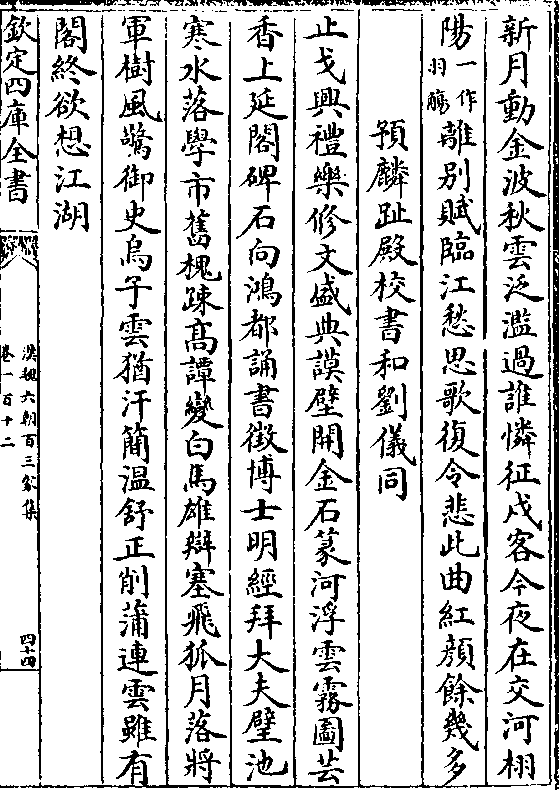 新月動金波秋雲泛濫過誰憐征戍客今夜在交河栩
陽一作羽觴離別賦臨江愁思歌復令悲此曲紅顔餘幾多
預麟趾殿校書和劉儀同
止戈興禮樂修文盛典謨壁開金石篆河浮雲霧圖芸
香上延閣碑石向鴻都誦書徵博士明經拜大夫璧池
寒水落學市舊槐疎髙譚變白馬雄辯塞飛狐月落將
軍樹風驚御史烏子雲猶汗簡温舒正削蒲連雲雖有
閣終欲想江湖
欽定四庫全書
漢魏六朝百三家集
卷一百十二
四十四